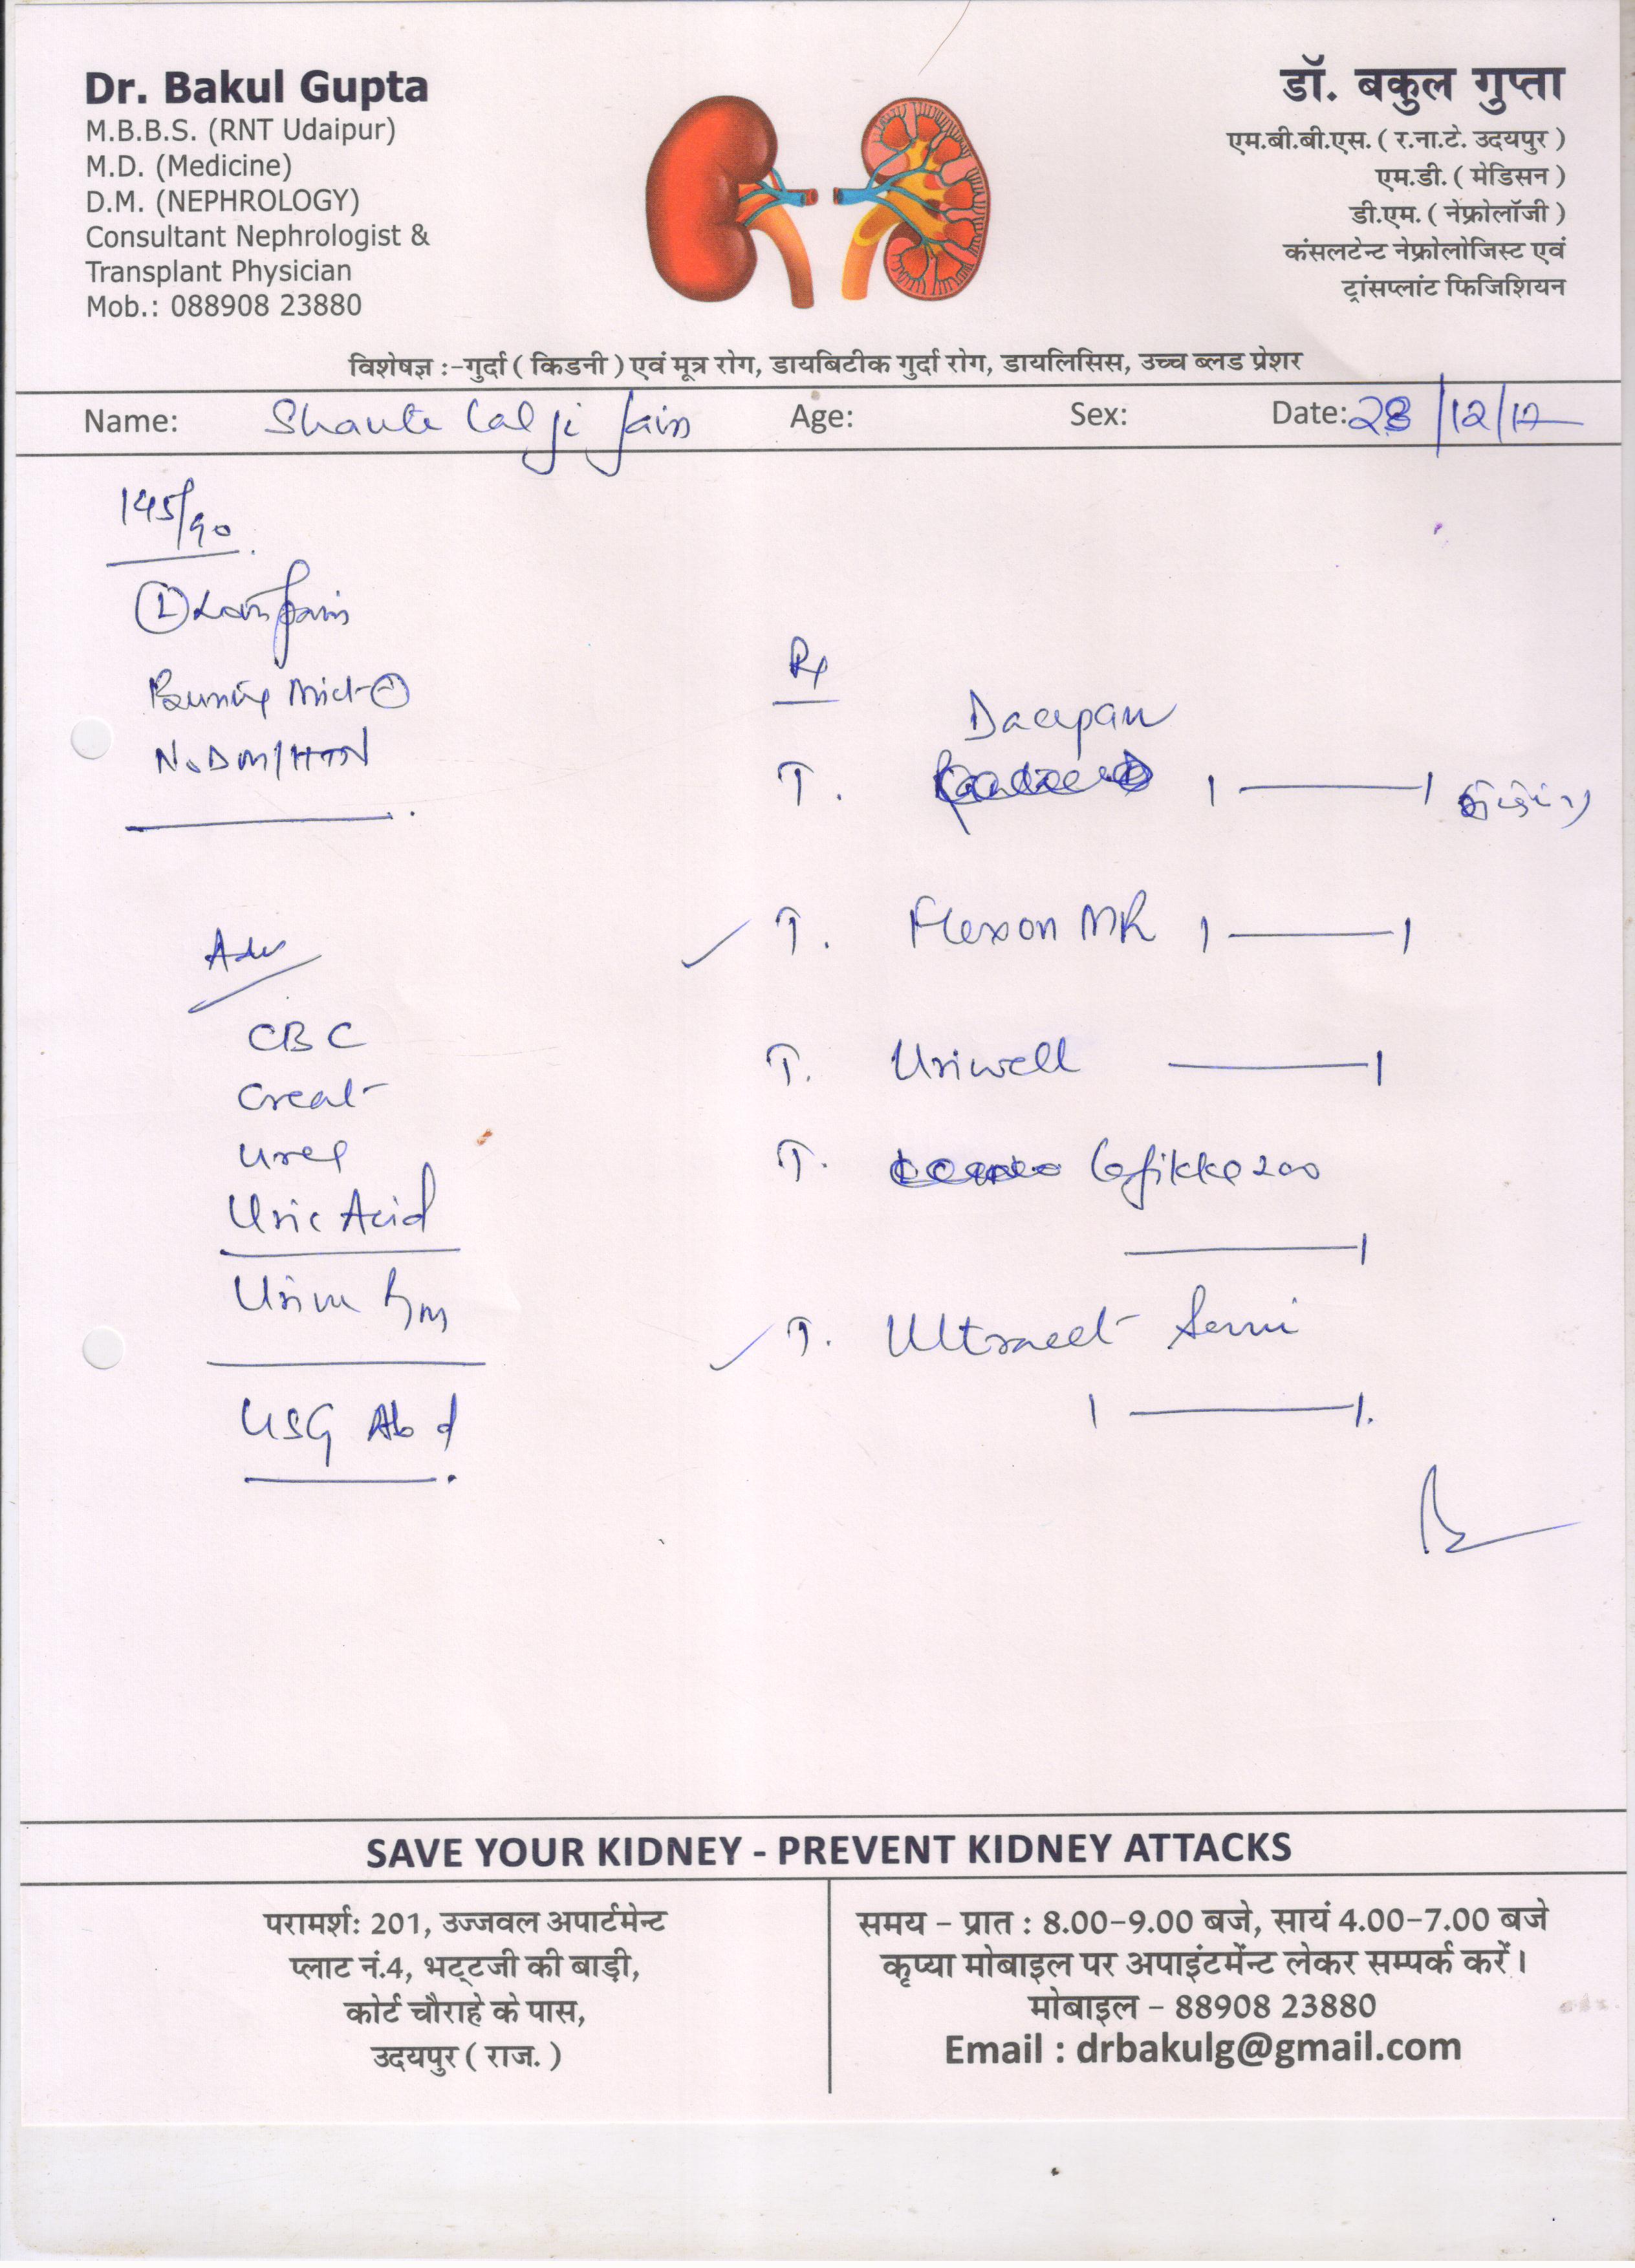 Dr. Bakul Gupta
M.B.B.S. (RNT Udaipur)
M.D. (Medicine)
D.M. (NEPHROLOGY)
Consultant Nephrologist &
Transplant Physician
Mob.: 088908 23880
डॉ. बकुल गुप्ता
एम.बी.बी.एस. ( र.ना.टे. उदयपुर )
एम.डी. ( मेडिसन )
डी.एम. ( नेफ्रोलॉजी )
कंसलटेन्ट नेफ्रोलोजिस्ट एवं
ट्रांसप्लांट फिजिशियन
विशेषज्ञ :-गुर्दा ( किडनी ) एवं मूत्र रोग, डायबिटीक गुर्दा रोग, डायलिसिस, उच्च ब्लड प्रेशर
Name: Shante Lal ji Jain Age: Sex: Date: 28/12/17
145/90
(L) Loin pain
Burning Mict
No DM/HTN
Adv
CBC
Creat
Urea
Uric Acid
Urine
USG Abd
Rx
T. 1 — 1
T. Flexon MR 1 — 1
T. Uriwell — 1
T. 200
— 1
T. Ultracet Semi
1 — 1.
SAVE YOUR KIDNEY - PREVENT KIDNEY ATTACKS
परामर्शः 201, उज्जवल अपार्टमेन्ट
प्लाट नं.4, भट्टजी की बाड़ी,
कोर्ट चौराहे के पास,
उदयपुर ( राज. )
समय – प्रात : 8.00-9.00 बजे, सायं 4.00-7.00 बजे
कृप्या मोबाइल पर अपाइंटमेंन्ट लेकर सम्पर्क करें।
मोबाइल – 88908 23880
Email : drbakulg@gmail.com